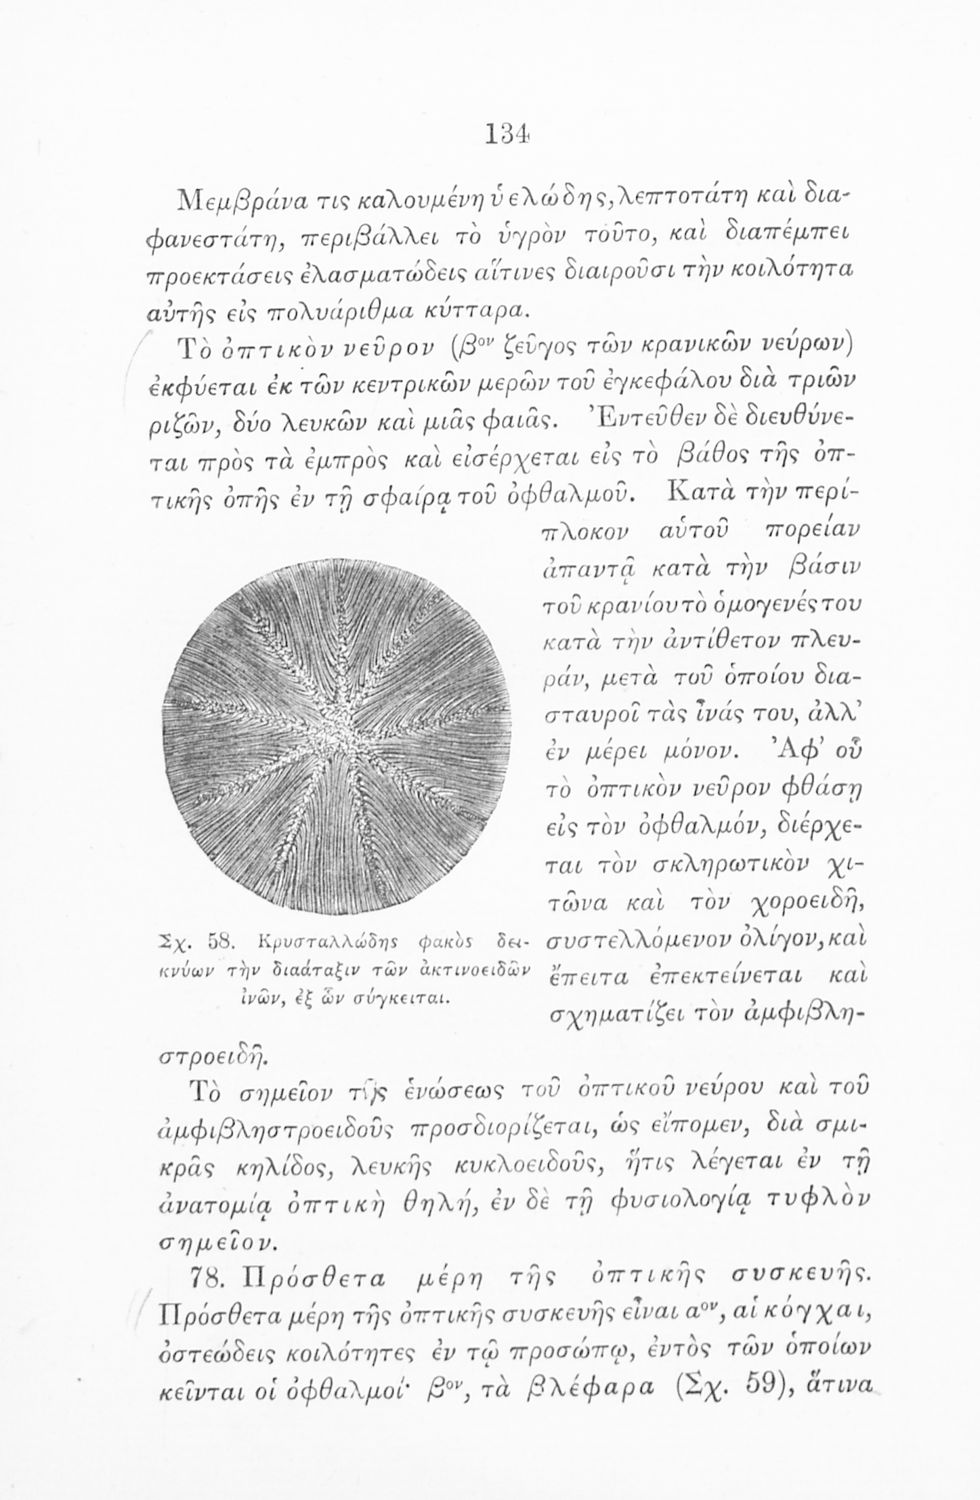 134
Μεμβράνα τις καλουμένη ὑελώδης, λεπτοτάτη καὶ δια-
φανεστάτη, περιβάλλει τὸ ὑγρὸν τοῦτο, καὶ διαπέμπει
προεκτάσεις ἐλασματώδεις αἵτινες διαιροῦσι τὴν κοιλότητα
αὐτῆς εἰς πολυάριθμα κύτταρα.
Τὸ ὀπτικὸν νεῦρον (βον ζεῦγος τῶν κρανικῶν νεύρων)
ἐκφύεται ἐκ τῶν κεντρικῶν μερῶν τοῦ ἐγκεφάλου διὰ τριῶν
ριζῶν, δύο λευκῶν καὶ μιᾶς φαιᾶς. Ἐντεῦθεν δὲ διευθύνε-
ται πρὸς τὰ ἐμπρὸς καὶ εἰσέρχεται εἰς τὸ βάθος τῆς ὀπ-
τικῆς ὀπῆς ἐν τῇ σφαίρᾳ τοῦ ὀφθαλμοῦ. Κατὰ τὴν περί-
πλοκον αὐτοῦ πορείαν
ἀπαντᾷ κατὰ τὴν βάσιν
τοῦ κρανίου τὸ ὁμογενές του
κατὰ τὴν ἀντίθετον πλευ-
ράν, μετὰ τοῦ ὁποίου δια-
σταυροῖ τὰς ἶνάς του, ἀλλ’
ἐν μέρει μόνον. Ἀφ’ οὗ
τὸ ὀπτικὸν νεῦρον φθάσῃ
εἰς τὸν ὀφθαλμόν, διέρχε-
ται τὸν σκληρωτικὸν χι-
τῶνα καὶ τὸν χοροειδῆ,
συστελλόμενον ὀλίγον, καὶ
ἔπειτα ἐπεκτείνεται καὶ
σχηματίζει τὸν ἀμφιβλη-
στροειδῆ.
Σχ. 58. Κρυσταλλώδης φακὸς δει-
κνύων τὴν διάταξιν τῶν ἀκτινοειδῶν
ἰνῶν, ἐξ ὧν σύγκειται.
Τὸ σημεῖον τῆς ἑνώσεως τοῦ ὀπτικοῦ νεύρου καὶ τοῦ
ἀμφιβληστροειδοῦς προσδιορίζεται, ὡς εἴπομεν, διὰ σμι-
κρᾶς κηλίδος, λευκῆς κυκλοειδοῦς, ἥτις λέγεται ἐν τῇ
ἀνατομίᾳ ὀπτικὴ θηλή, ἐν δὲ τῇ φυσιολογίᾳ τυφλὸν
σημεῖον.
78. Πρόσθετα μέρη τῆς ὀπτικῆς συσκευῆς.
Πρόσθετα μέρη τῆς ὀπτικῆς συσκευῆς εἶναι αον, αἱ κόγχαι,
ὀστεώδεις κοιλότητες ἐν τῷ προσώπῳ, ἐντὸς τῶν ὁποίων
κεῖνται οἱ ὀφθαλμοί· βον, τὰ βλέφαρα (Σχ. 59), ἅτινα